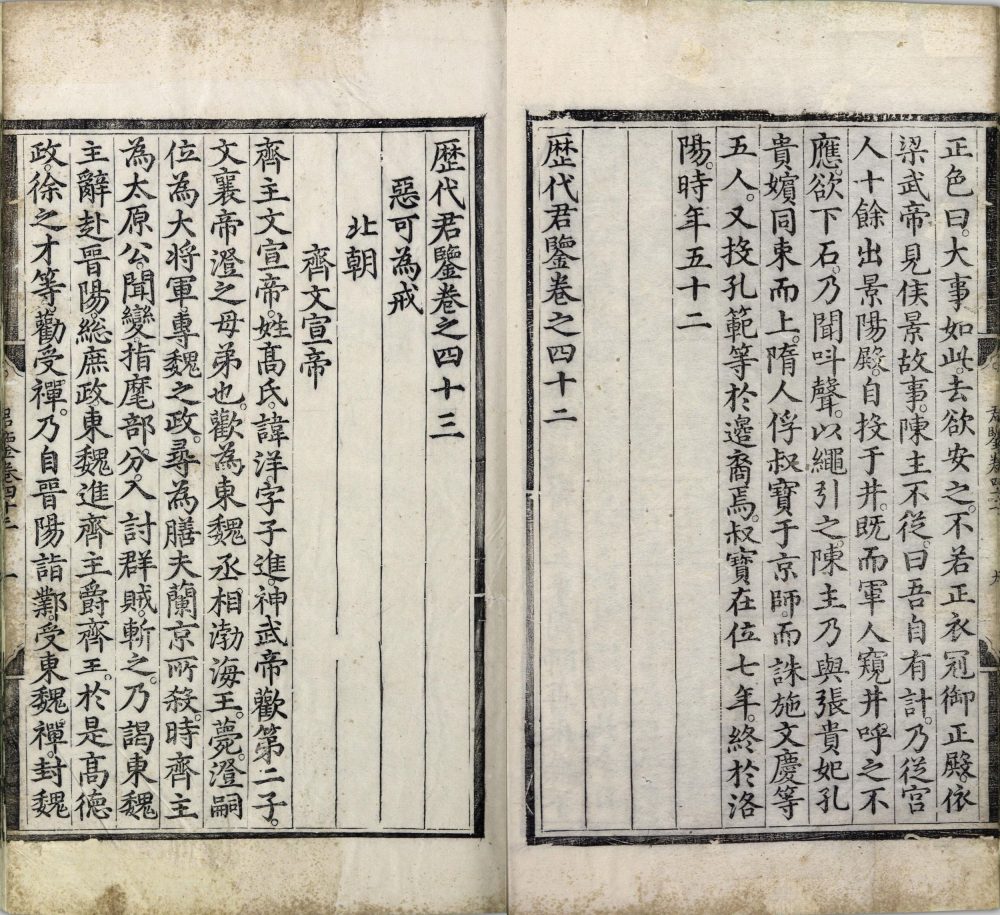 正色曰。大事如此。去欲安之。不若正衣冠御正殿。依
梁武帝見侯景故事。陳主不從。曰吾自有計。乃從宮
人十餘出景陽殿。自投于井。既而軍人窺井呼之不
應。欲下石。乃聞叫聲。以繩引之。陳主乃與張貴妃孔
貴嬪同束而上。隋人俘叔寶于京師。而誅施文慶等
五人。又投孔範等於邊裔焉。叔寶在位七年。終於洛
陽。時年五十二
歷代君鑒卷之四十二
歷代君鑒卷之四十三
惡可為戒
北朝
齊文宣帝
齊主文宣帝。姓高氏。諱洋字子進。神武帝歡第二子。
文襄帝澄之母弟也。歡為東魏丞相渤海王。薨。澄嗣
位為大將軍。專魏之政。尋為膳夫蘭京所殺。時齊主
為太原公。聞變指麾部分。入討群賊。斬之。乃謁東魏
主辭赴晉陽。總庶政。東魏進齊主爵齊王。於是高德
政。徐之才等勸受禪。乃自晉陽詣鄴。受東魏禪。封魏
君鑒卷四十三 一